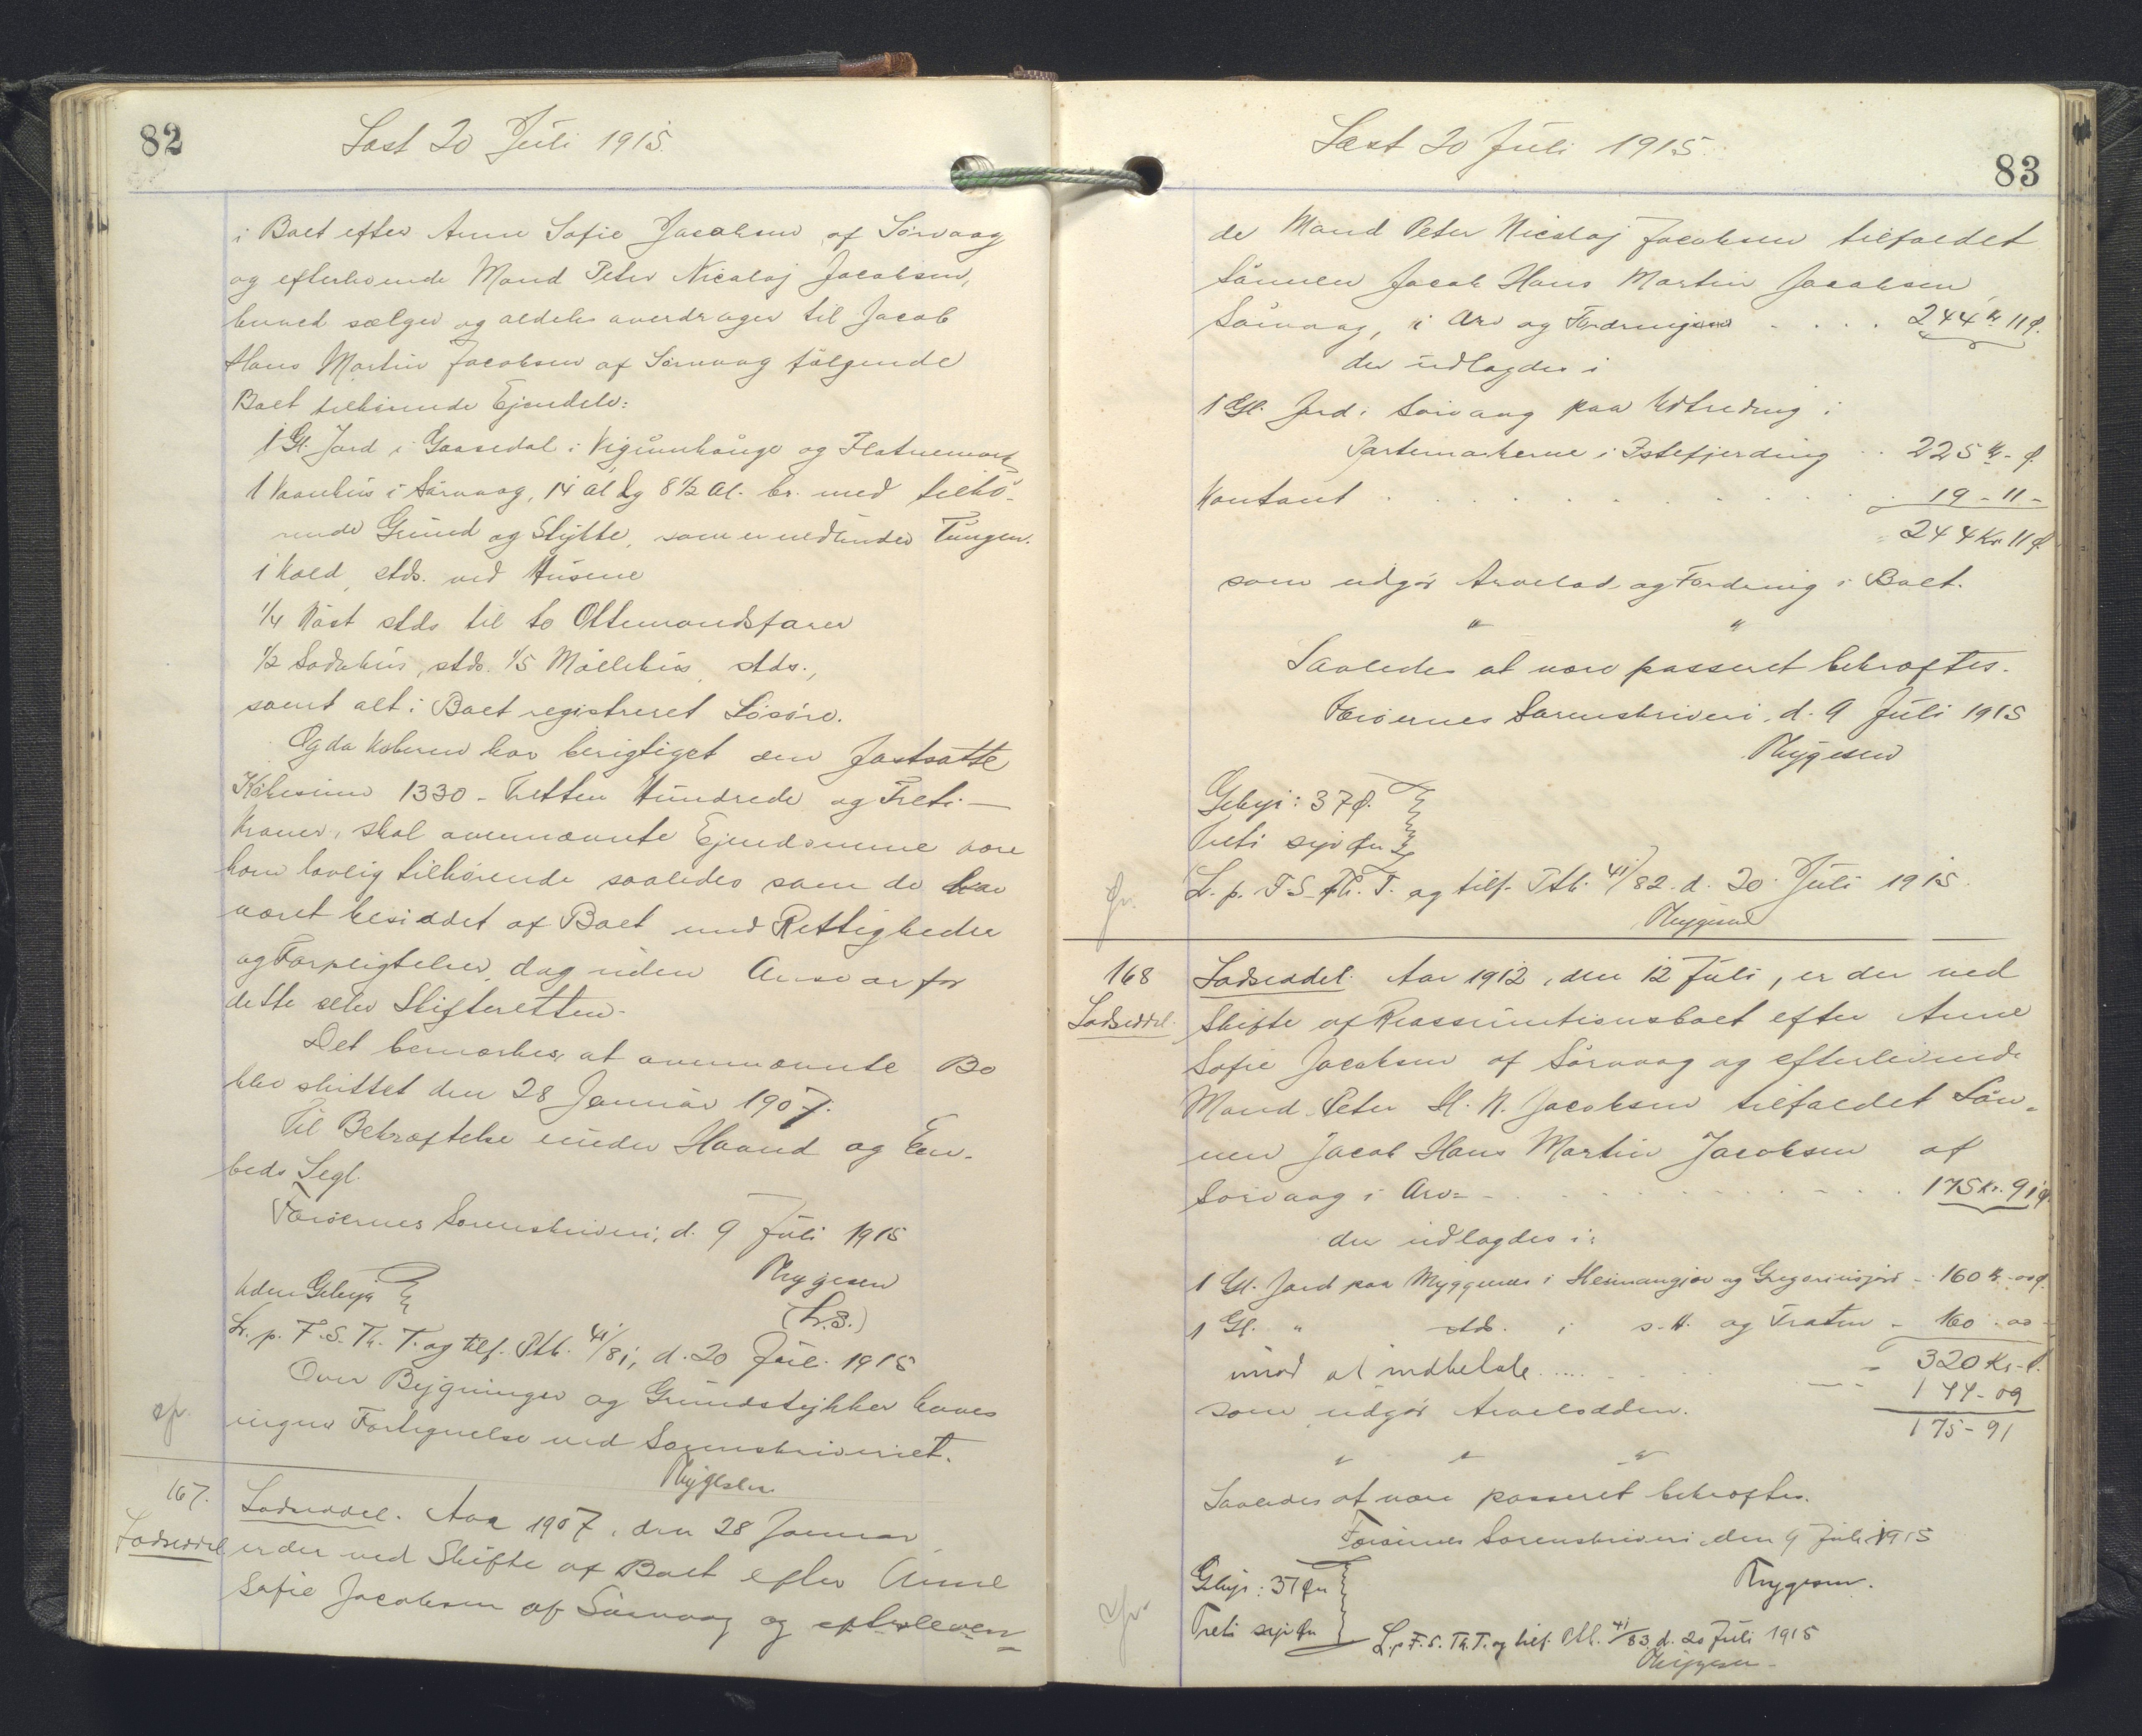 82
Læst 20 Juli 1915.
i Boet efter Anne Sofie Jacobsen af Sørvaag
og efterlevende Mand Peter Nicolaj Jacobsen,
herved sælger og aldeles overdrager til Jacob
Hans Martin Jacobsen af Sørvaag følgende
Boet tilhørende Ejendele:
1 Gl. Jord i Gaasedal i og
1 Vaanhus i Sørvaag, 14 al lg 8 1/2 al. br. med tilhø-
rende Grund og Stykke, som er nedunder Tungen.
1 stds. ved Husene
1/4 Nøst stds til to Ottemandsfarer
1/2 Sodahus, stds. 1/5 Møllehus, stds.,
samt alt i Boet registreret Løsøre.
Og da Køberen har berigtiget den fastsatte
Købesum 1330 - Tretten Hundrede og Treti -
Kroner, skal ovennævnte Ejendomme være
ham lovlig tilhørende saaledes som de har
været besiddet af Boet med Rettigheder
og Forpligtelser, dog uden Ansvar for
dette eller Skifteretten.
Det bemærkes, at ovennævnte Bo
blev sluttet den 28 Januar 1907.
Til Bekræftelse under Haand og Em-
beds Segl.
Færøernes Sorenskriveri, d. 9 Juli 1915
Thygesen
Uden Gebyr
(L.S.)
L. p. F. S. Th. T. og tilf. Ptb. 41/81, d. 20 Juli 1915
Over Bygninger og Grundstykker haves
ingen Fortegnelse ved Sorenskriveriet.
Thygesen
167.
Lodseddel. Aar 1907, den 28 Januar,
Lodseddel
er der ved Skifte af Boet efter Anne
Sofie Jacobsen af Sørvaag og efterleven-
83
Læst 20 Juli 1915.
de Mand Peter Nicolaj Jacobsen tilfaldet
Sønnen Jacob Hans Martin Jacobsen,
Sørvaag, i Arv og Fordringer . . . . 244 Kr 11 Ø.
der udlagdes i
1 Gl. Jord i Sørvaag paa Udtreding i
Partemarkerne i Istefjerding . . 225 Kr - Ø.
Kontant . . . . . . . . 19 - 11 -
244 Kr 11 Ø.
som udgør Arvelod og Fordring i Boet.
" "
Saaledes at være passeret bekræftes.
Færøernes Sorenskriveri, d. 9 Juli 1915
Thygesen
Gebyr: 37 Ø.
Treti syv Øre
L. p. F. S. Th. T. og tilf. Ptb. 41/82. d. 20 Juli 1915.
Thygesen
168
Lodseddel. Aar 1912, den 12 Juli, er der ved
Lodseddel.
Skifte af Reassumtionsboet efter Anne
Sofie Jacobsen af Sørvaag og efterlevende
Mand Peter H. N. Jacobsen tilfaldet Søn-
nen Jacob Hans Martin Jacobsen af
Sørvaag i Arv . . . . . . 175 Kr. 91 Ø.
der udlagdes i:
1 Gl. Jord paa Myggenes i Heimangjov og Gregoriusjord - 160 Kr. - 00 Ø.
1 Gl. " stds. i s. H. og - 160 . 00 -
320 Kr. - Ø.
imod at indbetale . . . . . 144 - 09
som udgør Arvelodden. 175 - 91
" " "
Saaledes at være passeret bekræftes.
Færøernes Sorenskriveri, den 9 Juli 1915
Gebyr: 37 Øre
Thygesen.
Treti syv Øre
L. p. F. S. Th. T. og tilf. Ptb. 41/83, d. 20 Juli 1915
Thygesen